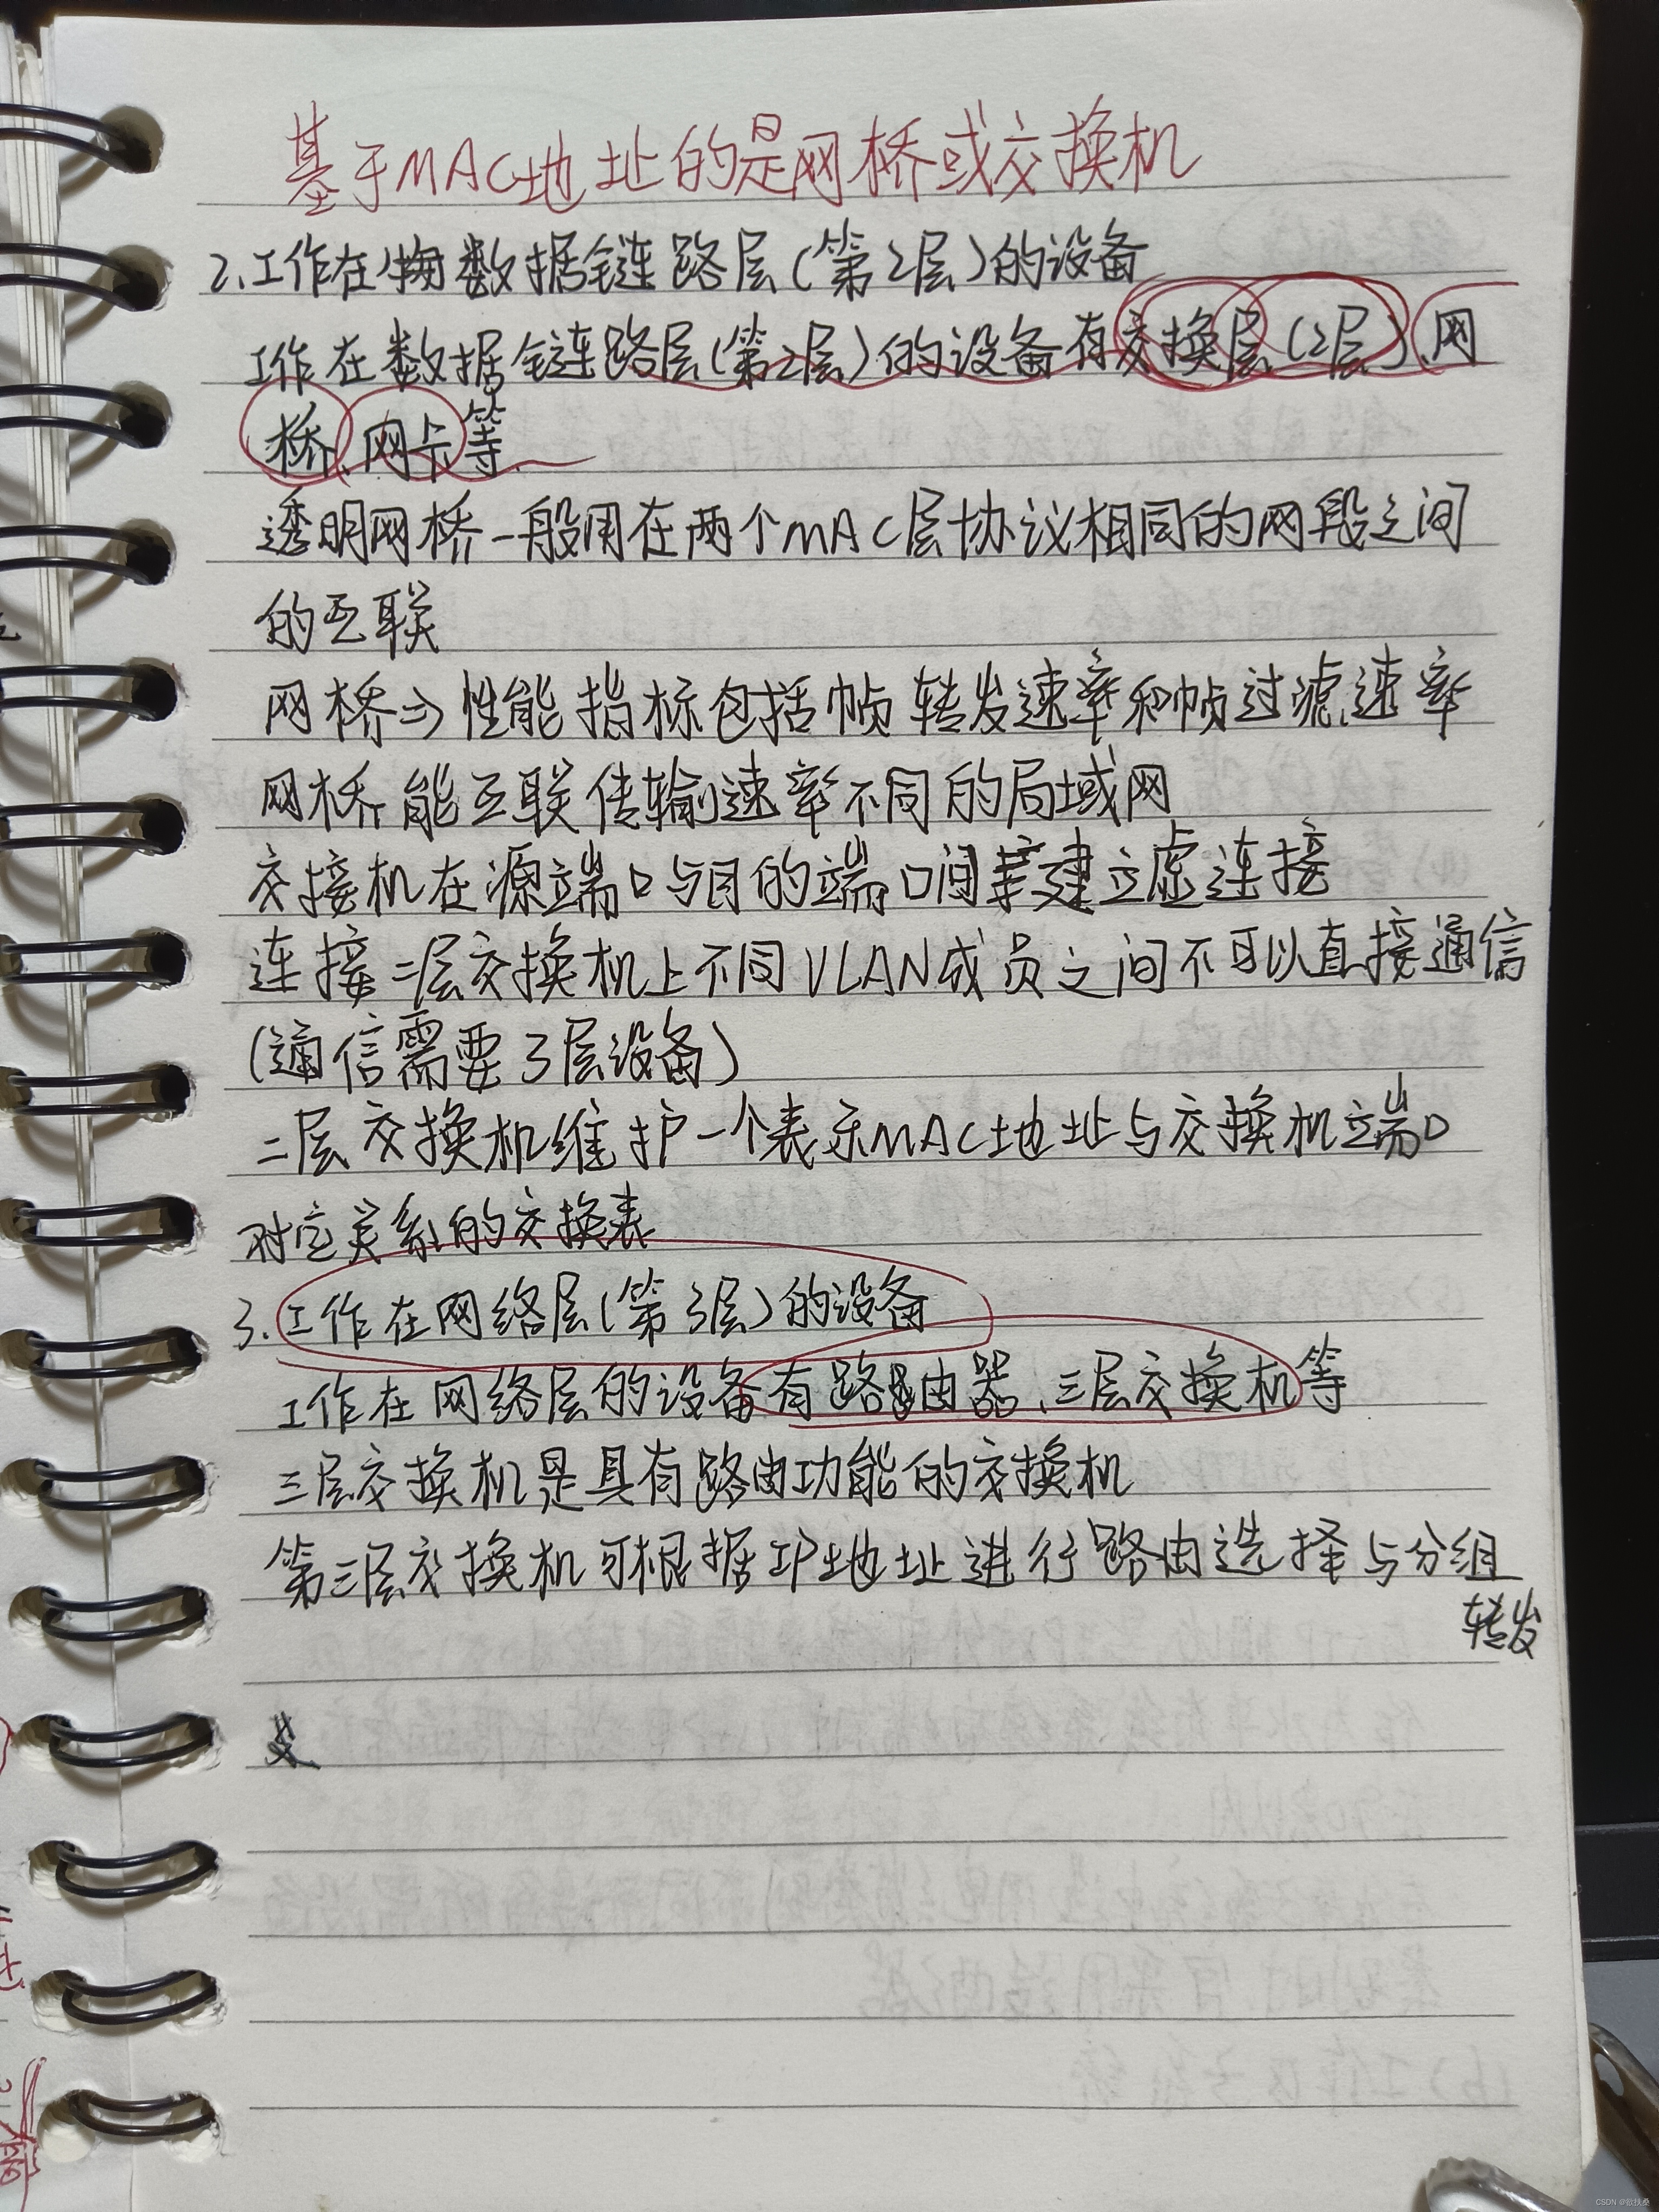 基于MAC地址的是网桥或交换机
2.工作在数据链路层(第2层)的设备
工作在数据链路层(第2层)的设备有交换层(2层)、网
桥、网卡等.
透明网桥一般用在两个MAC层协议相同的网段之间
的互联
网桥⇒性能指标包括帧转发速率和帧过滤速率
网桥能互联传输速率不同的局域网
交接机在源端口与目的端口间建立虚连接
连接二层交换机上不同VLAN成员之间不可以直接通信
(通信需要3层设备)
二层交换机维护一个表示MAC地址与交换机端口
对应关系的交换表
3.工作在网络层(第3层)的设备
工作在网络层的设备有路由器、三层交换机等
三层交换机是具有路由功能的交换机
第三层交换机可根据IP地址进行路由选择与分组
转发
CSDN @欲扶桑